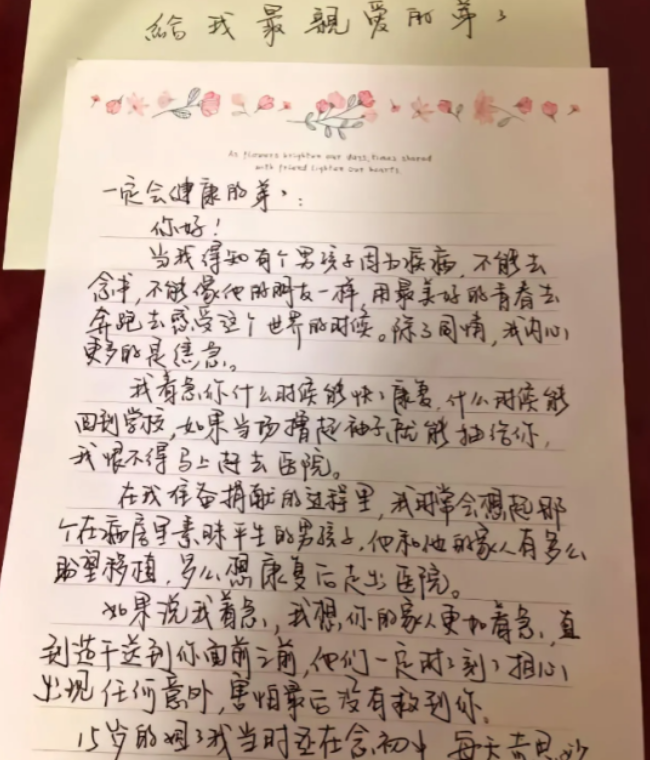 給我最親爱的弟弟
As flowers brighten our days, times shared
with friend lighten our hearts.
一定会健康的弟弟：
你好！
当我得知有个男孩子因为疾病，不能去
念书，不能像他的朋友一样，用最美好的青春去
奔跑去感受这个世界的时候。除了同情，我内心
更多的是焦急。
我着急你什么时候能快快康复，什么时候能
回到学校，如果当场撸起袖子就能抽给你，
我恨不得马上赶去医院。
在我准备捐献的过程里，我时常会想起那
个在病房里素昧平生的男孩子，他和他的家人有多么
盼望移植，多么想康复后走出医院。
如果说我着急，我想，你的家人更加着急，直
到造干送到你面前之前，他们一定时时刻刻担心
出现任何意外，害怕最后没有救到你。
15岁的姐姐我当时还在念初中 每天